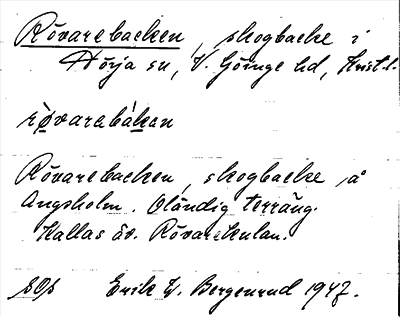 Rövarebacken, skogbacke i
Hörja sn, V. Göinge hd, Krist.l.
rövarebákan
Rövarebacken, skogbacke å
Ängsholm. Oländig terräng.
Kallas äv. Rövarekulan.
sOs Erik W. Bergenrud 1947.